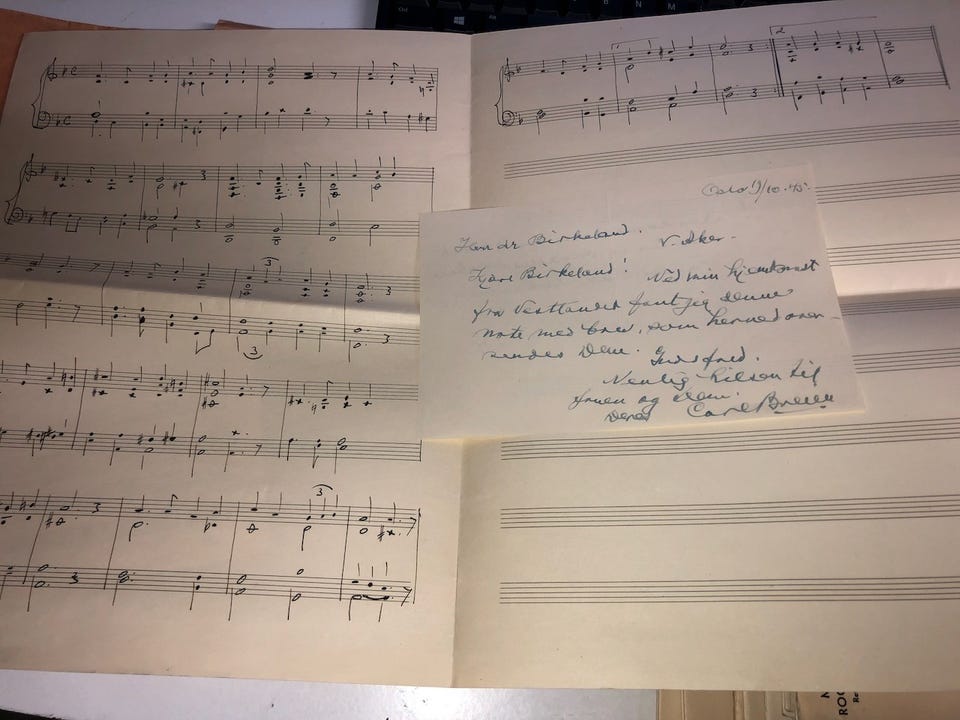 Oslo 9/10.45.
Herr dr Birkeland.
V. Aker.
Kjære Birkeland! Ved min hjemkomst
fra Vestlandet fant jeg denne
note med brev, som hermed over-
sendes Dem.
Vennlig hilsen til
fruen og Dem.
Deres Carl Bruun
3
3
3
1
2
ROC